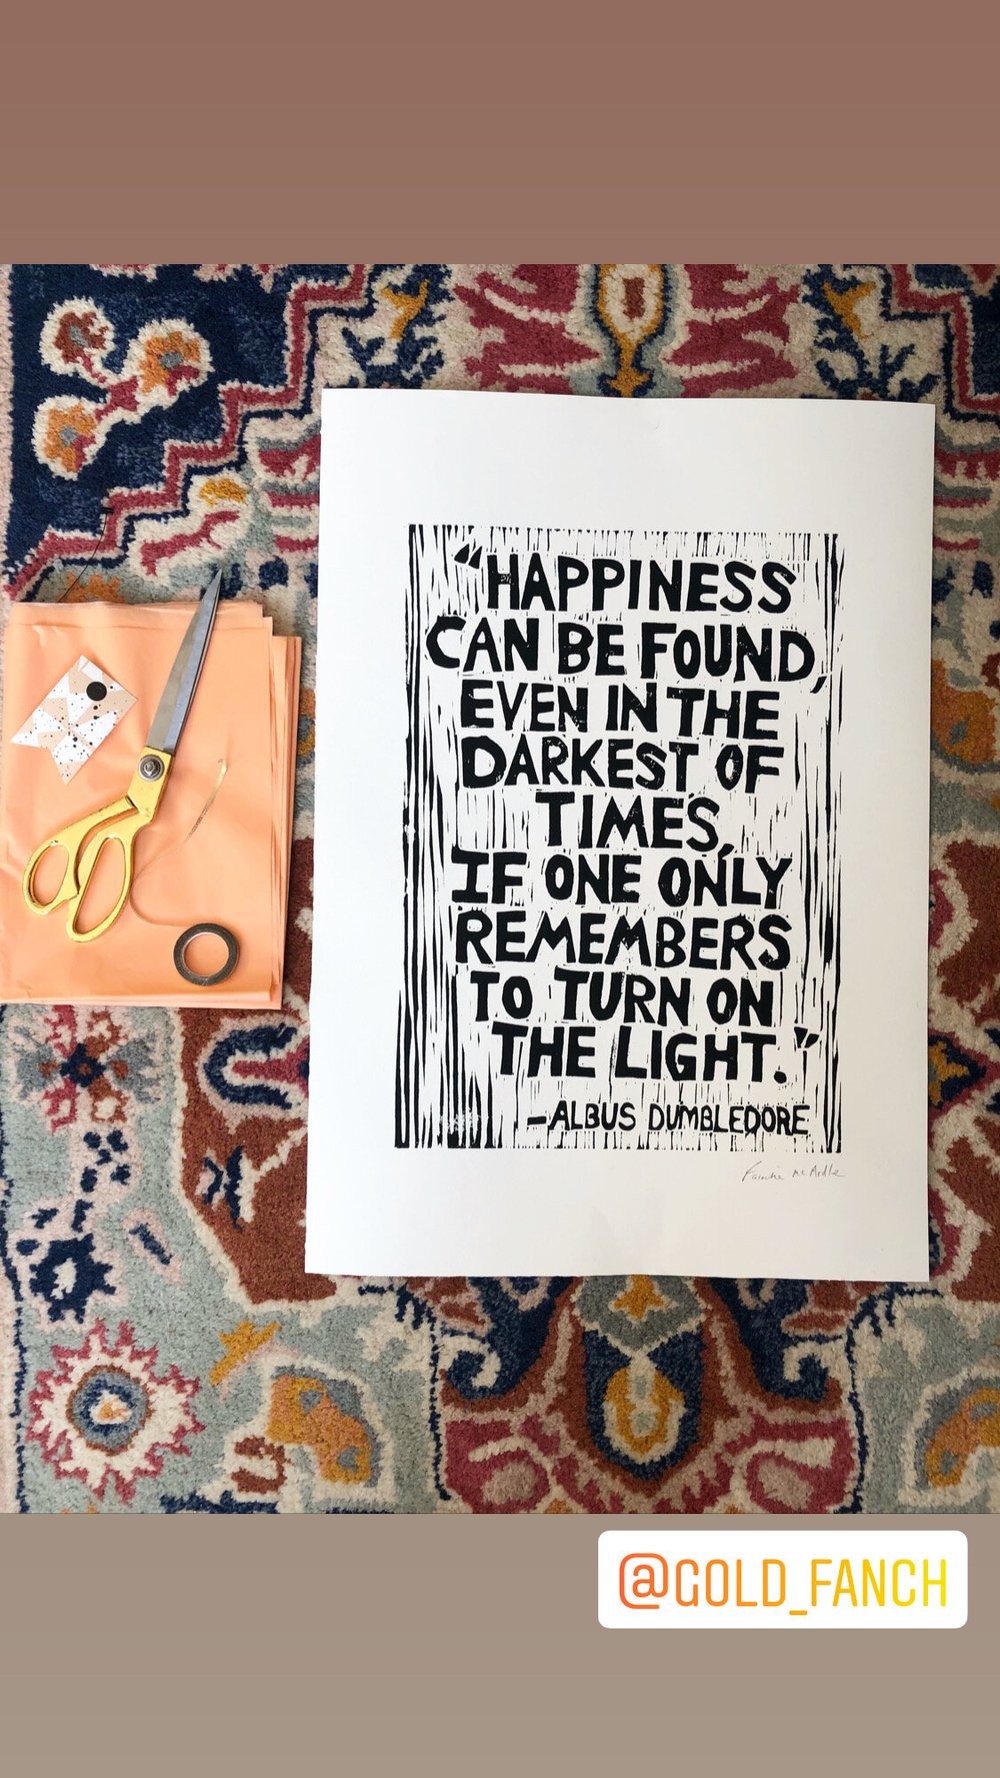 “HAPPINESS
CAN BE FOUND,
EVEN IN THE
DARKEST OF
TIMES,
IF ONE ONLY
REMEMBERS
TO TURN ON
THE LIGHT.”
—ALBUS DUMBLEDORE
@GOLD_FANCH